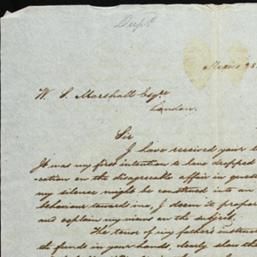 Dupl
Mexico 28
W. S. Marshall Esqre.
London.
Sir
I have received your l
It was my first intention to have dropped
cation on the disagreeable affair in quest
my silence might be construed into an
behaviour toward me, I deem it proper
and explain my views on the subject.
The tenor of my father's instruct
the funds in your hands, clearly shew tha